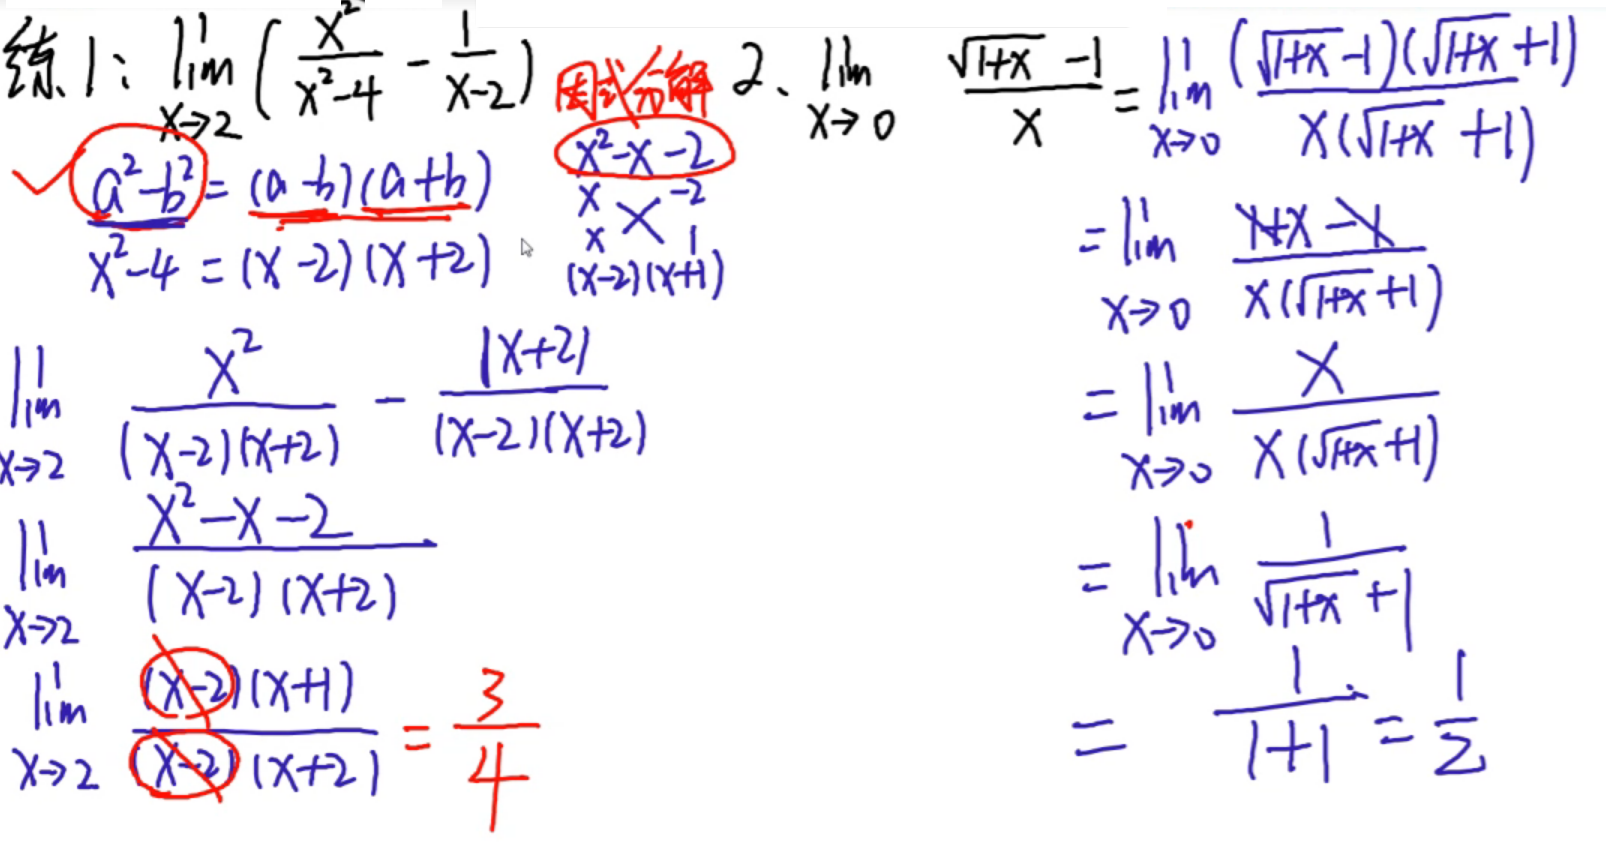 练1: lim x→2 (x²/(x²-4) - 1/(x-2))
因式分解
a²-b² = (a-b)(a+b)
x²-4 = (x-2)(x+2)
x²-x-2
x -2
x 1
(x-2)(x+1)
lim x→2 x²/((x-2)(x+2)) - 1(x+2)/((x-2)(x+2))
lim x→2 (x²-x-2)/((x-2)(x+2))
lim x→2 ((x-2)(x+1))/((x-2)(x+2)) = 3/4
2、lim x→0 (√(1+x) -1)/x = lim x→0 ((√(1+x) -1)(√(1+x) +1))/(x(√(1+x) +1))
= lim x→0 (1+x-1)/(x(√(1+x) +1))
= lim x→0 x/(x(√(1+x) +1))
= lim x→0 1/(√(1+x) +1)
= 1/(1+1) = 1/2